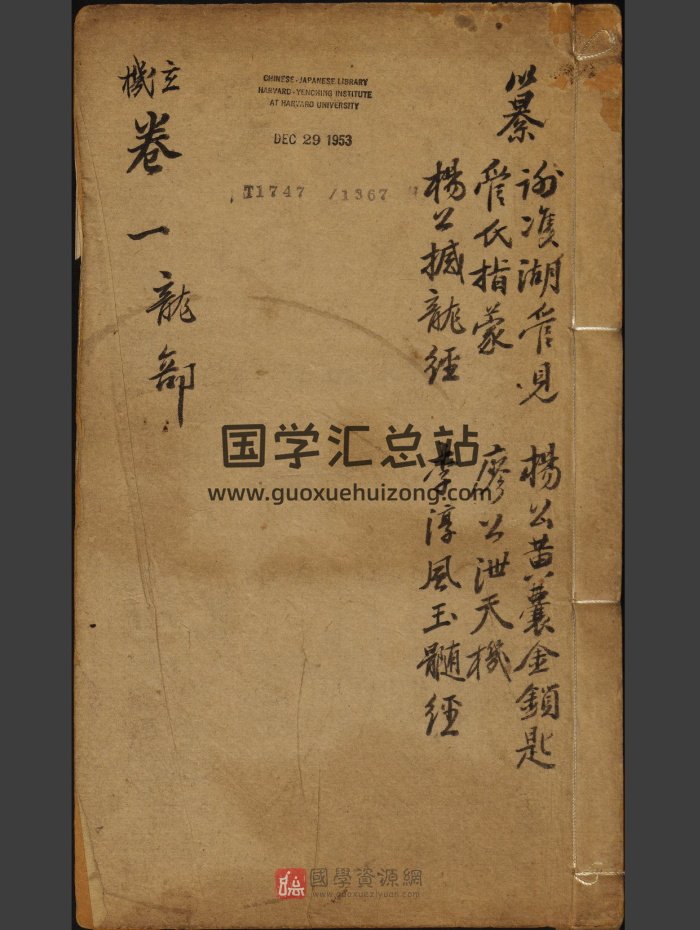 纂
謝雙湖管見 楊公黃囊金鎖匙
管氏指蒙 廖公泄天機
楊公撼龍經 李淳風玉髓經
CHINESE-JAPANESE LIBRARY
HARVARD-YENCHING INSTITUTE
AT HARVARD UNIVERSITY
DEC 29 1953
T1747 /1367
玄機
卷一龍部
国学汇总站
www.guoxuehuizong.com
國學資源網
www.guoxueziyuan.com